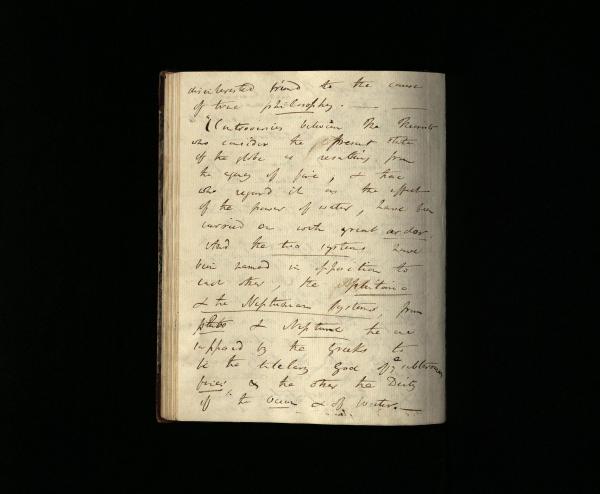 disinterested friend to the cause
of true philosophy. —
Controversies between the Theorists
who consider the present state
of the globe as resulting from
the agency of fire, & those
who regard it as the effect
of the power of water, have been
carried on with great ardor
And the two systems have
been named in opposition to
each other, the Plutonic
& the Neptunian Systems, from
Pluto & Neptune the one
supposed by the Greeks to
be the tutelary God of subterranean
fires & the other the Deity
of the ocean & of water. —